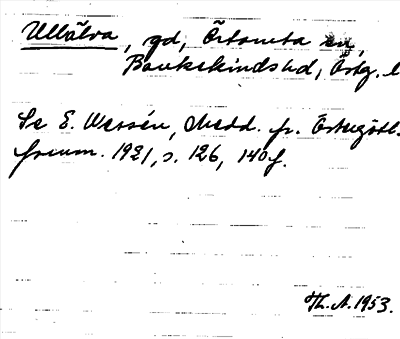 Ullälva, gd, Örtomta sn,
Bankekinds hd, Östg. l
Se E. Wessén, Medd. fr. Östergötl.
fornm. 1921, s. 126, 140f.
Th. A. 1953.